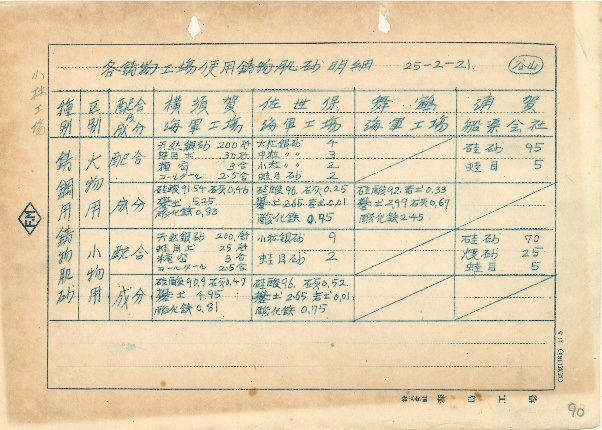 各鋳物工場使用鋳物肌砂明細 25-2-21. 谷山
小林工場
種別 区別 配合及成分 横須賀海軍工場 佐世保海軍工場 舞鶴海軍工場 浦賀船渠会社
鋳鋼用鋳物肌砂
大物用 配合
天然銀砂 200 大粒銀砂 4 硅砂 95
蛙目土 30 中粒〃〃 3 蛙目 5
糯 3合 小粒〃〃 2
コールタール 2.5合 蛙目砂 2
成分
硅酸91.54 石灰0.46 硅酸96. 石灰0.25 硅酸92. 苦土0.33
礬土 5.25 礬土2.65 苦土0.01 礬土2.99 石灰0.67
酸化鉄 0.83 酸化鉄 0.75 酸化鉄 2.45
小物用 配合
天然銀砂 200. 小粒銀砂 9 硅砂 70
蛙目土 25 蛙目砂 2 焼砂 25
糯 3合 蛙目 5
コールタール 2.5合
成分
硅酸90.9 石灰0.47 硅酸96. 石灰0.52
礬土 4.95 礬土2.65 苦土0.01
酸化鉄 0.81 酸化鉄 0.75
FM
工場
90